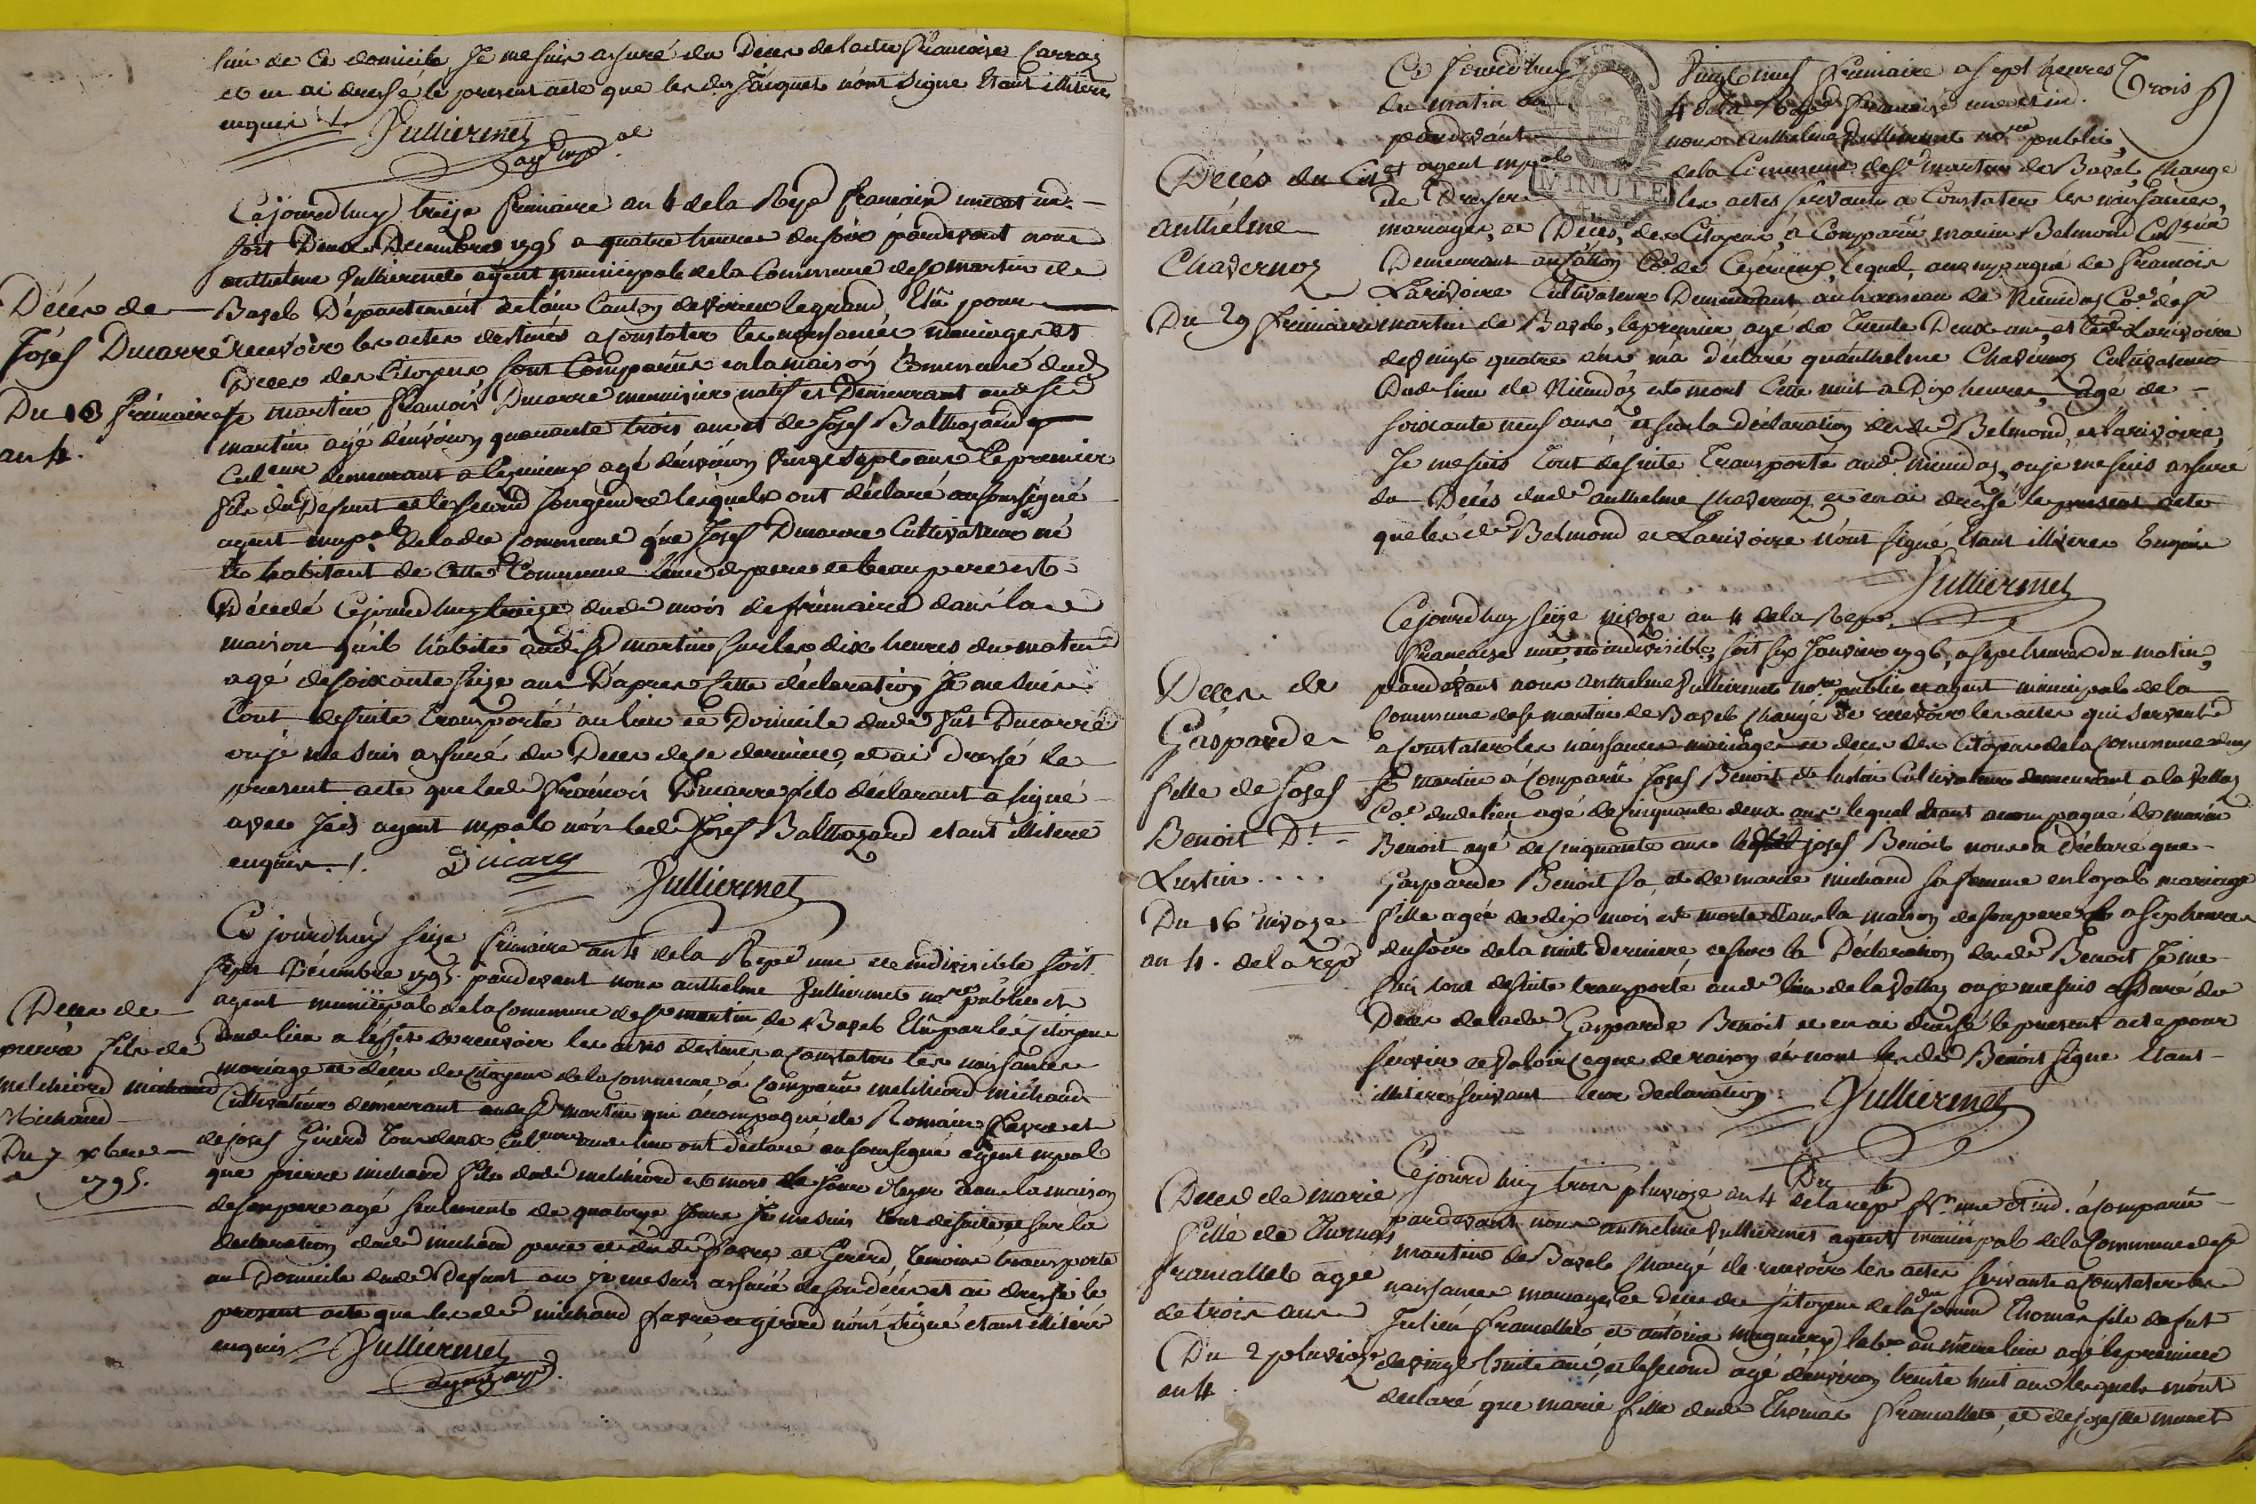 lieu de Ce domicile, Je me suis assuré du Deces de laditte Francoise Carraz
et en ai dressé le present acte que les dts Jacquet n'ont signe etant illiteré
enquis ./.
Julliermet
agt mpal
Cejourdhuy treize frimaire an 4 de la Rep francaise une et ind.
soit Deux Decembre 1795 a quatre heures du soir pardevant nous
anthelme Jullierme agent municipal de la Commune de St martin de
Bavel Département de lain Canton de virieu le grand Elû pour
recevoir les actes destinés a constater les naissances mariages et
Deces des Citoyens, sont Comparus en la maison Commune dud
St martin francois Ducarre menuisier natif et Demeurant aud St
martin agé denviron quarante trois ans et de Josef Balthazard
Culeur demeurant a Ceyzerieux agé denviron vingt sept ans le premier
fils du Defunt et le second son gendre lesquels ont déclaré au soussigné
agent mupal de ladte Commune que Josef Ducarre Cultivateur né
et habitant de Cette Commune leur dt pere et beaupere est
Décedé Cejourdhuy treize dud mois de frimaire dans la
maison quil habite aud St martin sur les dix heures du matin
agé de soixante seize ans D'apres Cette déclaration Je me suis
tout de suite transporté au lieu et Domicile dud fut Ducarre
ou je me suis assuré du Deces de ce dernier, et ai dressé le
present acte que led François Ducarre fils déclarant a signé
avec Je dt agent mpal non led Josef Balthazard etant illiteré
enquis ./. Ducare
Julliermet
Décés de
Josef Ducarre
Du 13 frimaire
an 4.
Ce jourdhuy seize frimaire an 4 de la Rep une et indivisible soit
sept Décembre 1795. pardevant nous anthelme Jullierme nore public et
agent municipal de la Commune de St martin de Bavel Elû par les Citoyens
dud lieu a l'effet de recevoir les actes destinés a constater les naissances
mariage et déces des Citoyens de la Commune, a Comparu melchiord michaud
Cultivateur demeurant aud St martin qui acompagné de Romain favre et
de josef Girerd tous deux Culeurs aud lieu ont déclare au soussigné agent mpal
que pierre michaud fils dud melchiord est mort le jour d'hyer dans la maison
de son pere agé seulement de quatorze jours Je me suis tout de suite sur la
declaration dud michaud pere et dud favre et Girerd, temoins transporté
au Domicile dud Defunt ou je me suis assuré de son déces et ai dressé le
present acte que les dt michaud favre et girerd n'ont signé etant illiteré
enquis
Julliermet
agent mpl.
Deces de
pierre fils de
melchiord michaud
Michaud
Du 7 xbre
1795.
Trois
Ce Jourdhuy vingt neuf frimaire a sept heures
du matin an 4 de la Rep francaise une et ind.
pardevant nous Anthelme Jullierme nore public
et agent mpal de la Commune de St martin de Bavel Chargé
MINUTE
de Dresser les actes servants a Constater les naissances,
mariages, et Déces, des Citoyens, a Comparu marin Belmond Culteur
Demeurant au sillon Coe de Ceyzerieux, lequel, accompagné de francois
Larivoire Cultivateur Demeurant au hameau de Niundaz Coe de St
martin de Bavel, le premier agé de Trente Deux ans, et led Larivoire
de vingt quatre ans m'a déclaré qu'anthelme Chavernoz Cultivateur
Dud lieu de Niundaz est mort Cette nuit a Dix heures, agé de
soixante neuf ans, et sur la déclaration desd Belmond, et Larivoire,
Je me suis tout de suite transporté aud Niundaz, ou je me suis assuré
du Déces dud anthelme Chavernoz, et en ai dressé le present acte
que les dt Belmond et Larivoire n'ont signé, etant illiteres Enquis
Julliermet
Décés du Cit
anthélme
Chavernoz
Du 29 frimaire
Cejourdhuy seize nivoze an 4 de la Rep
francaise une, et indivisible, soit six Janvier 1796, a sept heures du matin,
pardevant nous anthelme Jullierme nore public et agent municipal de la
Commune de St martin de Bavel Chargé de recevoir les actes qui servent
a constater les naissances mariages et déces des Citoyens de la Commune dud
St martin a Comparu Josef Benoit dt Lustin Cultivateur demeurant a la vellaz
Coe dud lieu agé de Cinquante deux ans, lequel etant acompagné de marin
Benoit agé de Cinquante ans josef Benoit nous a déclaré que
Gasparde Benoit sa, et de marie michaud sa femme en loyal mariage
fille agée de dix mois est morte dans la maison de son pere a six heures
du soir de la nuit derniere, et sur la Déclaration desd Benoit Je me
suis tout de suite transporté aud lieu de la vellaz ou je me suis assuré du
Deces de lade Gasparde Benoit et en ai dressé le present acte pour
servir et valoir ce que de raison et n'ont les dt Benoit signe etant
illiteres suivant leur declaration.
Julliermet
Deces de
Gasparde
fille de Josef
Benoit Dt
Lustin . . . .
Du 16 nivoze
an 4. de la rep
Du
Cejourdhuy trois pluvioze an 4 de la rep fr. une et ind. a comparu
pardevant nous anthelme Jullierme agent municipal de la Commune de St
martin de Bavel Chargé de recevoir les actes servants a constater les
naissances mariages et déces des Citoyens de lad Comm Thomas fils de fut
Julien francallet et antoine magnieux labr au même lieu agé le premier
de vingt huit ans, et le second agé denviron trente huit ans lesquels m'ont
declaré que marie fille dud Thomas francallet, et de josette munet
Deces de marie
fille de Thomas
francallet agée
de trois ans
Du 2 pluvioze
an 4.